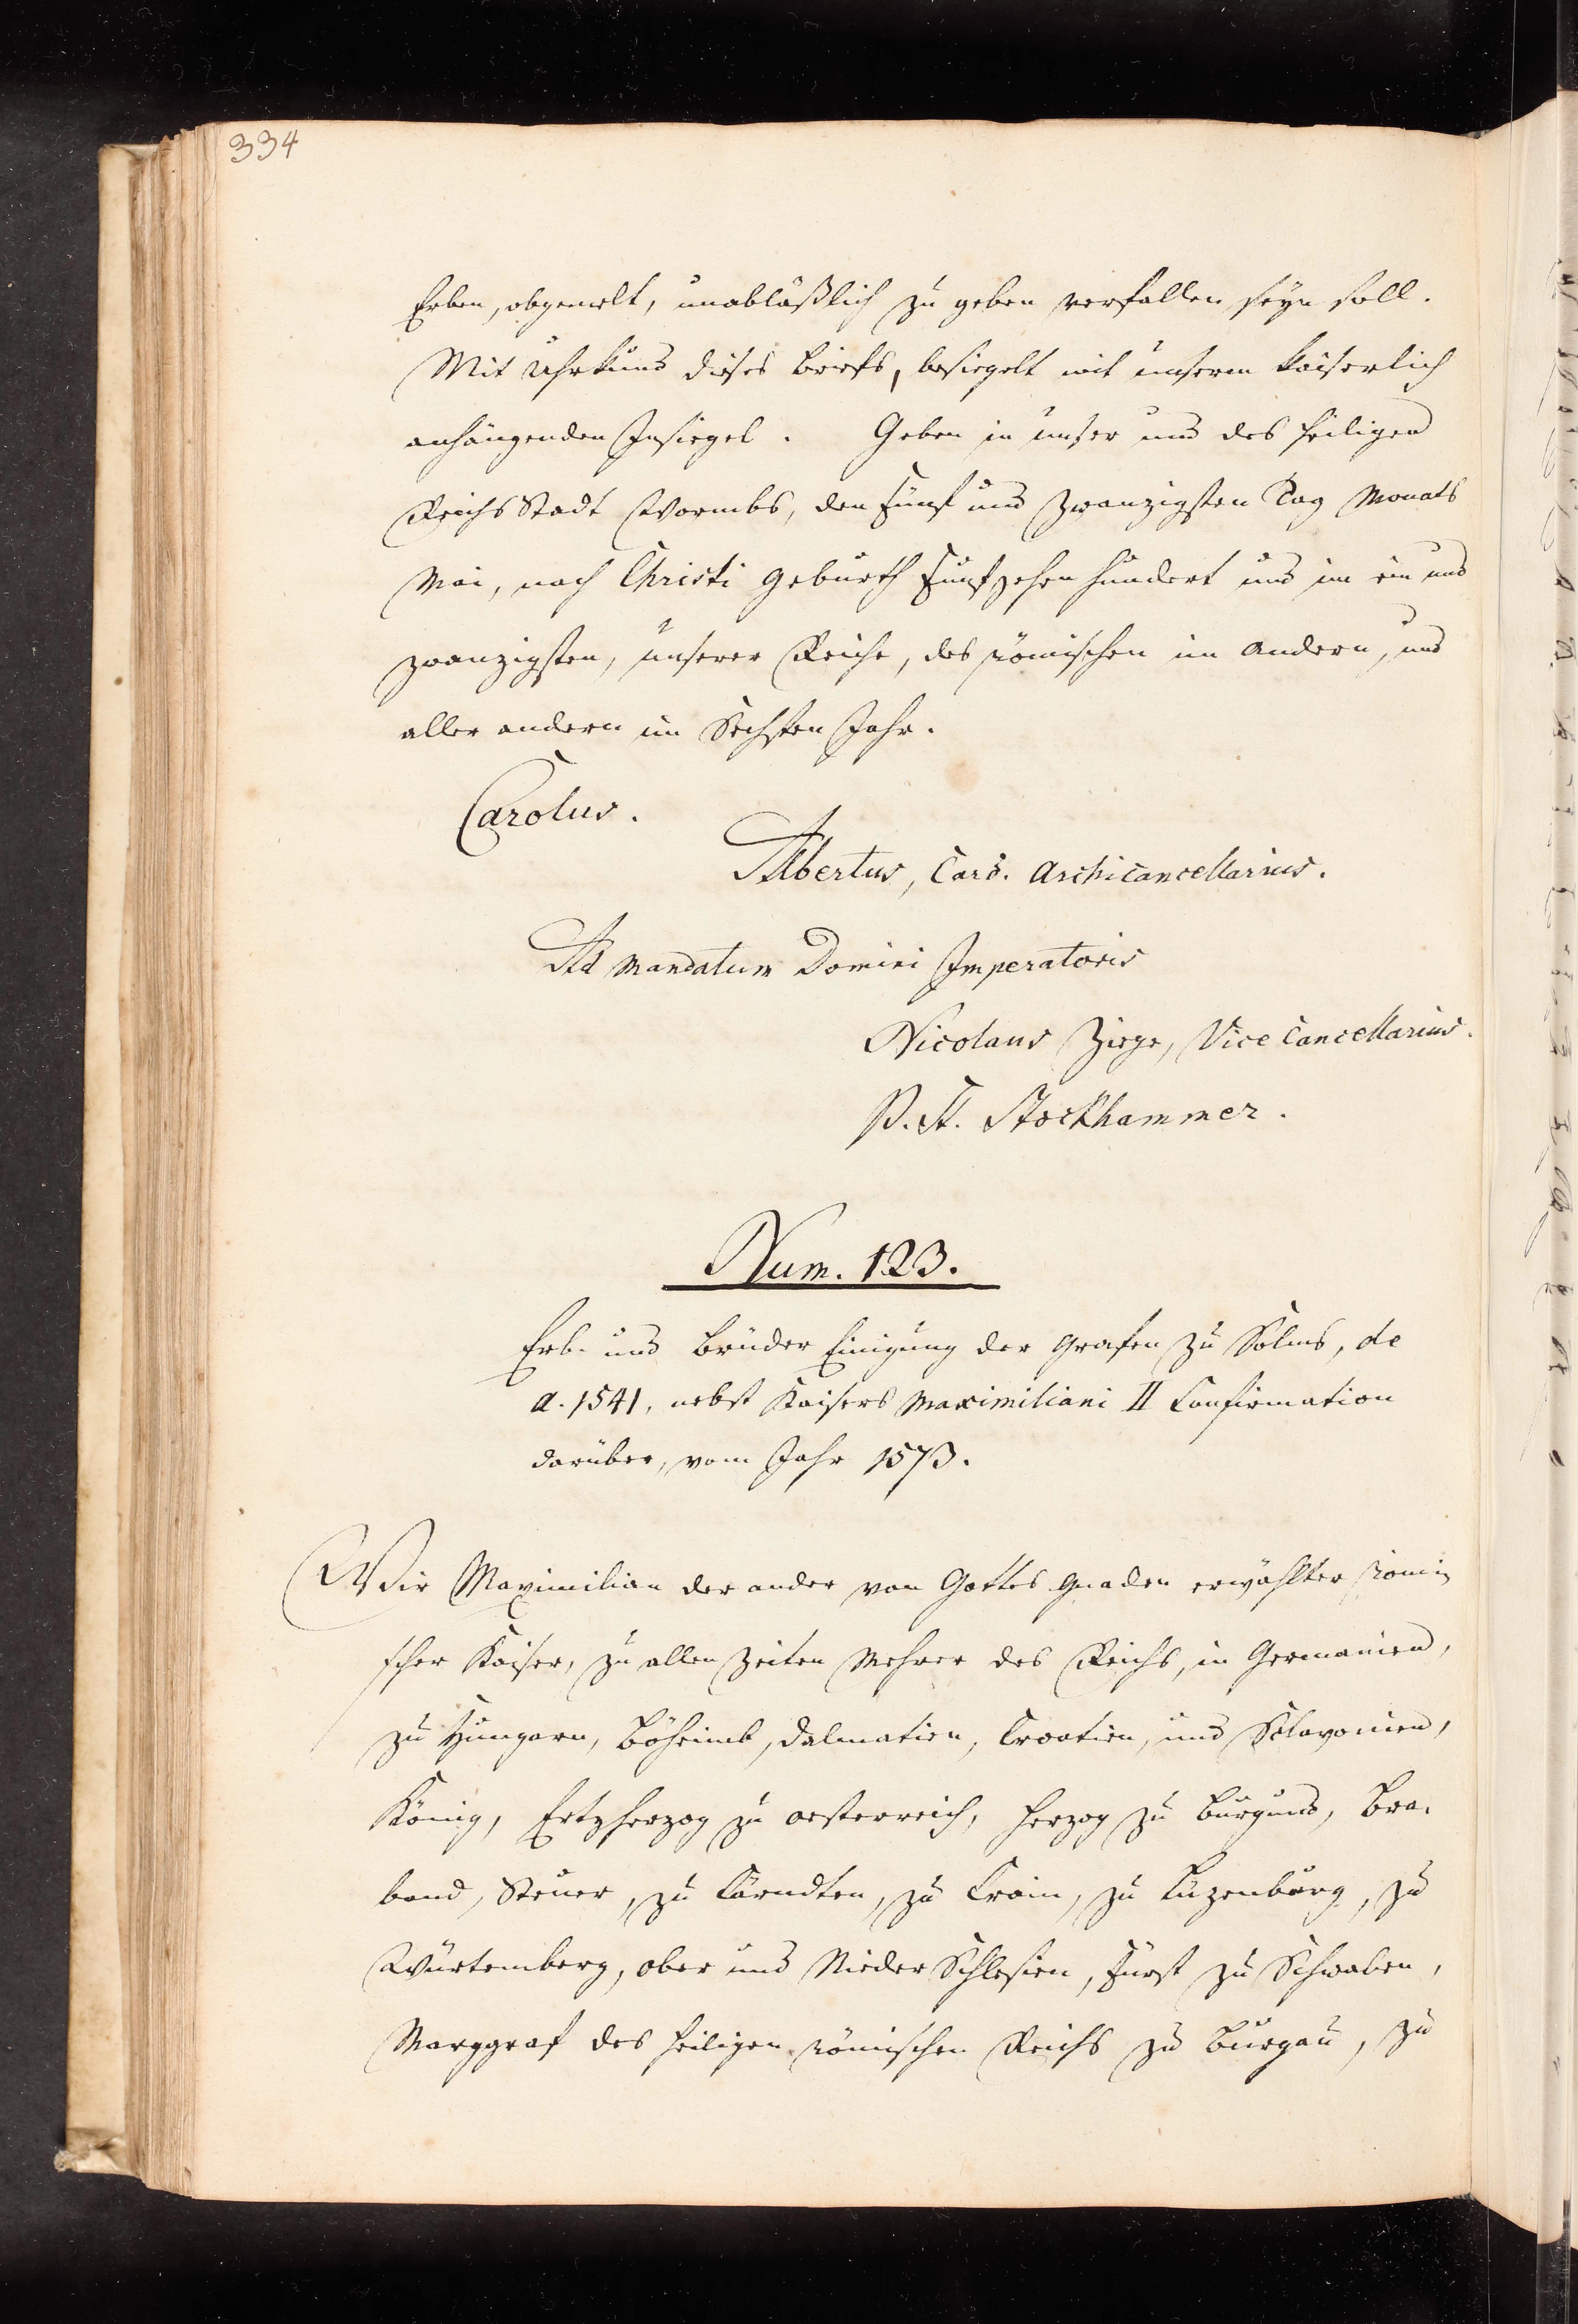 334
Erben, obgemelt, unabläßlich zu geben verfallen seyn soll.
Mit Uhrkund dieses Briefs, besiegelt mit unserm kaiserlich
anhängenden Insiegel. Geben in unser und des heiligen
Reichs Stadt Wormbs, den fünf und zwanzigsten Tag Monats
Mai, nach Christi Geburth funfzehen hundert und im ein und
zwanzigsten, unserer Reiche, des römischen im Andern, und
aller andern im Sechsten Jahr.
Carolus.
Albertus, Card. Archicancellarius.
Ad Mandatum Domini Imperatoris
Nicolaus Ziege, Vice Cancellarius.
P. St. Stockhammer.
Num. 123.
Erb- und Brüder Einigung der Grafen zu Solms, de
a. 1541, nebst Kaisers Maximiliani II Confirmation
darüber, vom Jahr 1573.
Wir Maximilian der ander von Gottes Gnaden erwählter Römi-
scher Kaiser, zu allen Zeiten Mehrer des Reichs, in Germanien,
zu Hungarn, Böheimb, Dalmatien, Croatien, und Sclavonien,
König, Ertzherzog zu Oesterreich, Herzog zu Burgund, Bra-
band, Steuer, zu Kärndten, zu Crain, zu Luzenburg, zu
Würtemberg, ober und Nieder Schlesien, Fürst zu Schwaben,
Marggraf des heiligen römischen Reichs zu Burgau, zu